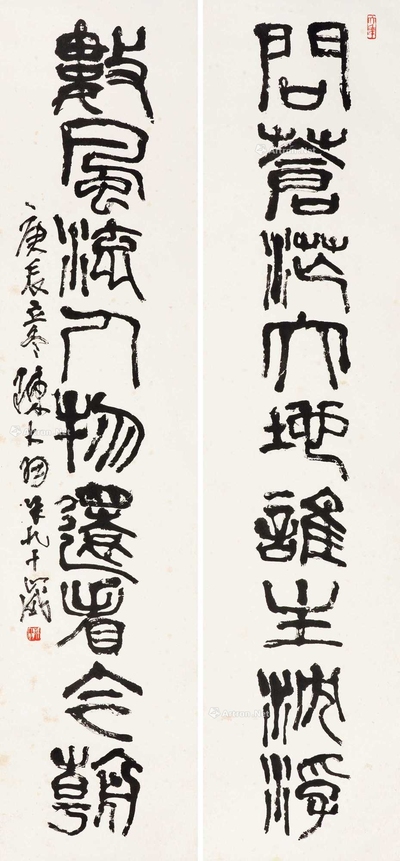 問蒼茫大地誰主沈浮
數風流人物還看今朝
庚辰立冬陳大羽年九十歲
Artron.Net